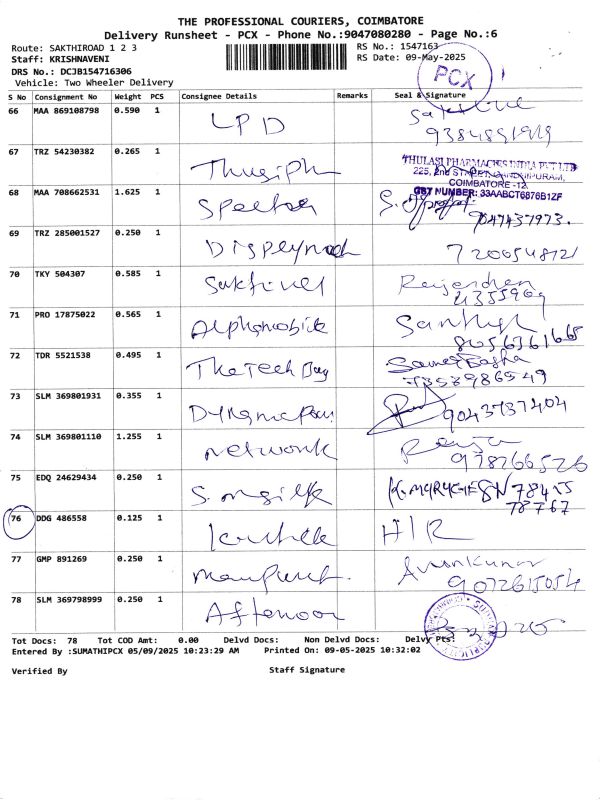 THE PROFESSIONAL COURIERS, COIMBATORE
Delivery Runsheet - PCX - Phone No.:9047080280 - Page No.:6
Route: SAKTHIROAD 1 2 3
RS No.: 1547163
Staff: KRISHNAVENI
RS Date: 09-May-2025
DRS No.: DCJB154716306
PCX
Vehicle: Two Wheeler Delivery
S No Consignment No Weight PCS Consignee Details Remarks Seal & Signature
66 MAA 869108798 0.590 1 LPD
67 TRZ 54230382 0.265 1
THULASI PHARMACIES INDIA PVT LTD
225, 2nd STREET, GANDHIPURAM,
COIMBATORE -12.
GST NUMBER: 33AABCT6876B1ZF
68 MAA 708662531 1.625 1
9047437973.
69 TRZ 285001527 0.250 1
7200548121
70 TKY 504307 0.585 1 Sakthivel Rajendran
71 PRO 17875022 0.565 1 Alphamobile Santhosh
8056361665
72 TDR 5521538 0.495 1 TheTech Bay
7353986549
73 SLM 369801931 0.355 1
9043737404
74 SLM 369801110 1.255 1 network
978766526
75 EDQ 24629434 0.250 1 78455
78767
76 DDG 486558 0.125 1 H/R
77 GMP 891269 0.250 1 Arunkumar
9072615054
78 SLM 369798999 0.250 1 Afternoon
Tot Docs: 78 Tot COD Amt: 0.00 Delvd Docs: Non Delvd Docs: Delvy Pts:
Entered By :SUMATHIPCX 05/09/2025 10:23:29 AM Printed On: 09-05-2025 10:32:02
Verified By Staff Signature